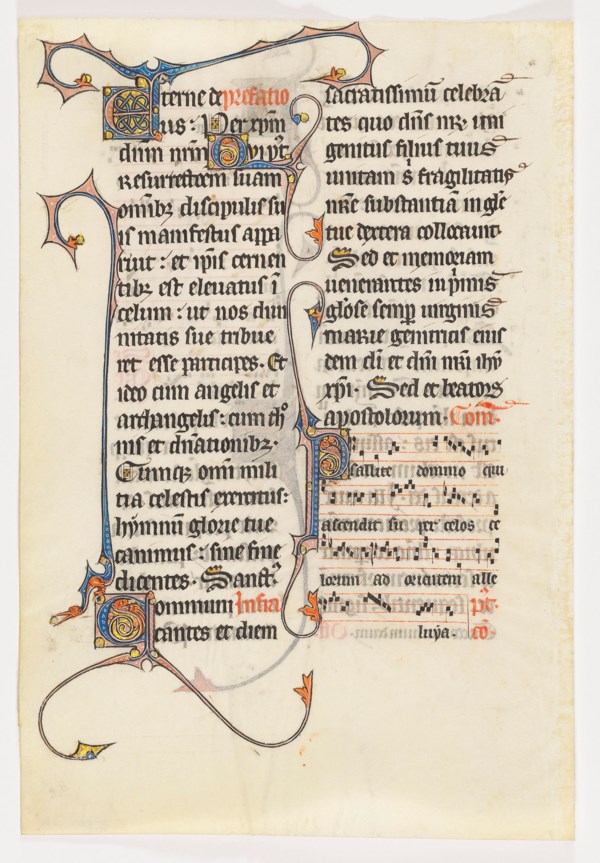 Eterne de prefatio
us : Per xp̄m
dn̄m nr̄m Qui pt̄
Resurrectōem suam
omībꝫ discipulis su
is manifestus appa
ruit : et ip̄is cernen
tibꝫ est eleuatus ī
celum : ut nos diui
nitatis sue tribue
ret esse participes . Et
ideo cum angelis et
archangelis : cum thͦ
nis et dn̄ationibꝫ .
Cumqꝫ om̄i mili
tia celestis exercitus :
hymnū glorie tue
canimus : sine fine
dicentes . Sanctꝰ .
Communi Infra
cantes et diem
sacratissimū celebrā
tes quo dn̄s nr̄ uni
genitus filius tuus
unitam s̄ fragilitatis
nr̄e substantiā in gl̄e
tue dextera collocauit .
Sed et memoriam
uenerantes inpͥmis
gl̄ose semꝑ uirginis
marie genitricis eius
dem di̅ et dn̄i nr̄i ihu̅
xp̄i . Sed et beatorꝫ
apostolorum . Com̄ .
Psallite domino qui
ascendit suꝑ celos ce
lorum ad orientem alle
luya . cō